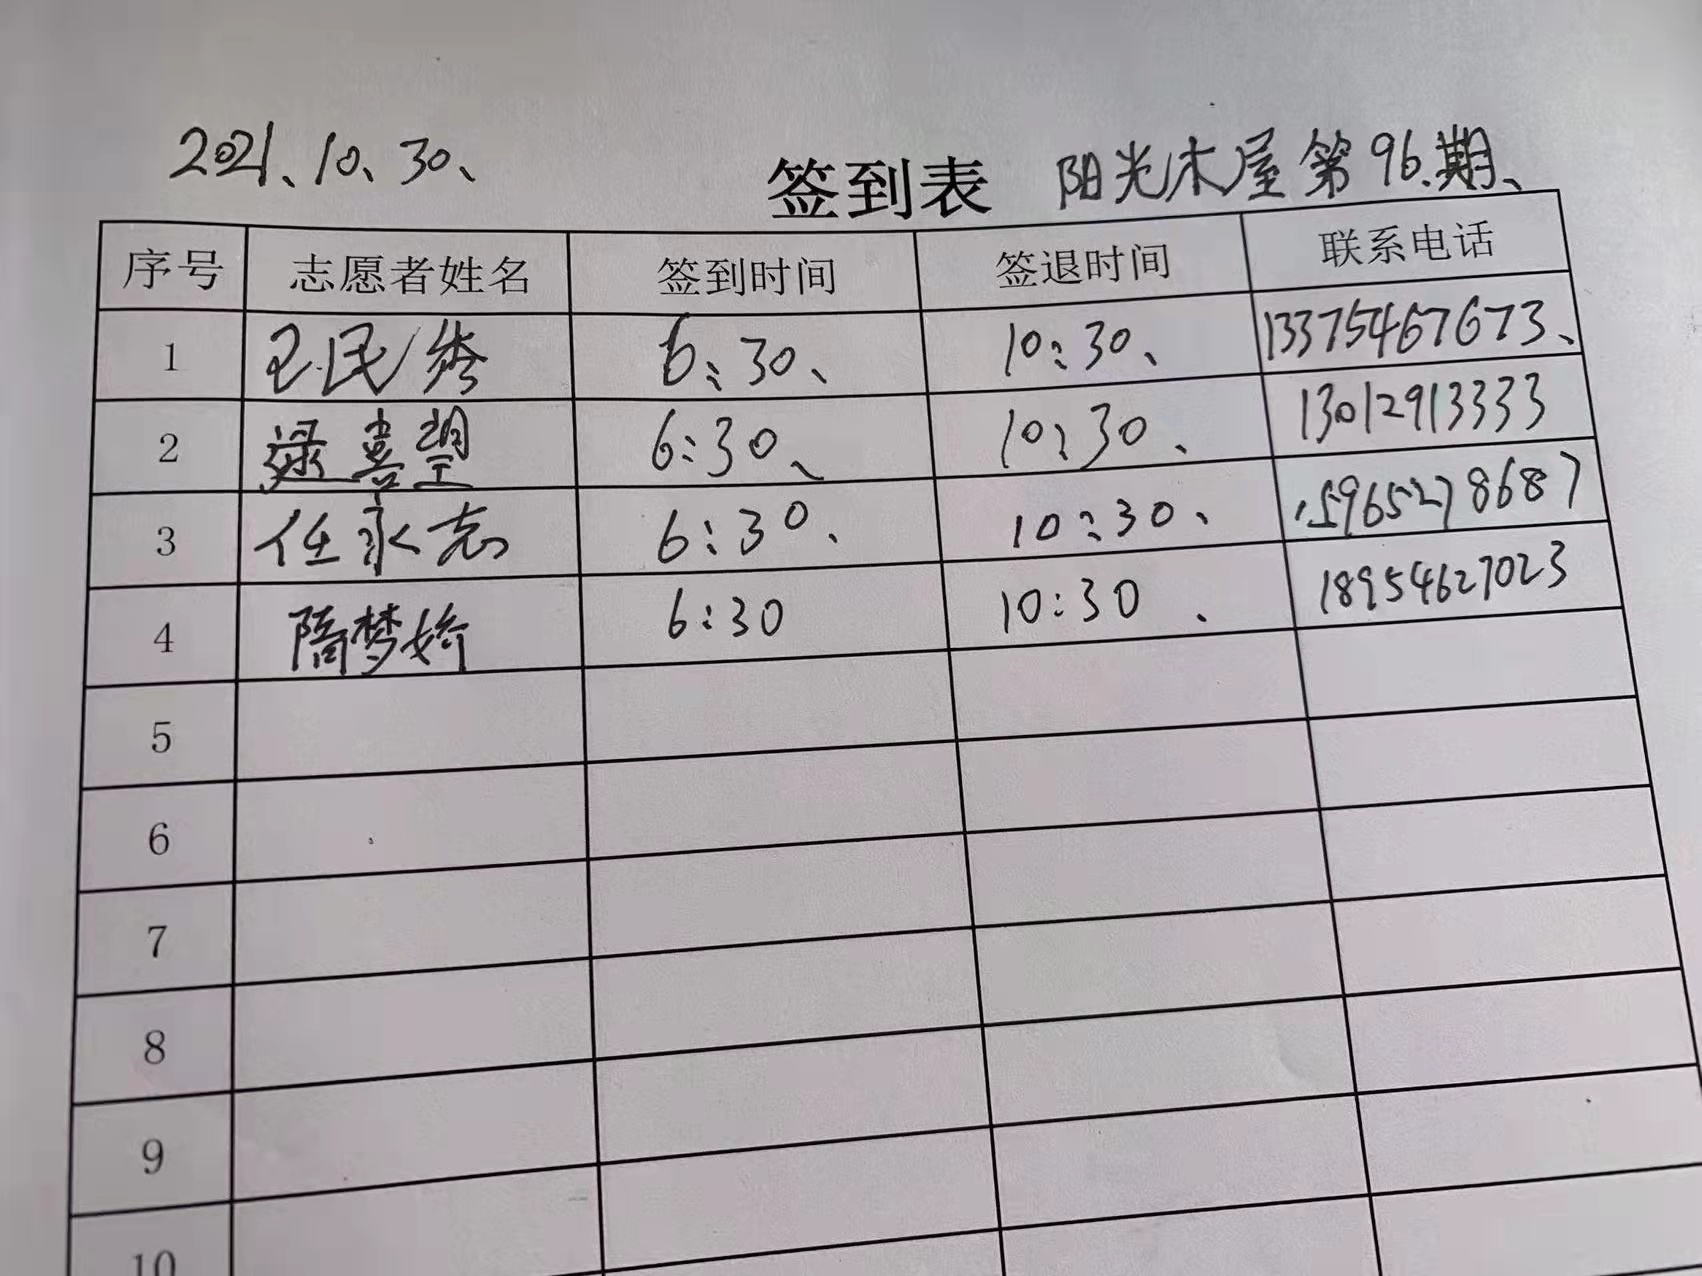 2021、10、30、
签到表 阳光木屋第96期、
序号 志愿者姓名 签到时间 签退时间 联系电话
1 王民秀 6:30、 10:30、 13375467673、
2 逯喜望 6:30、 10:30、 13012913333
3 任永志 6:30、 10:30、 15965278687
4 隋梦娇 6:30 10:30、 18954627023
5
6
7
8
9
10